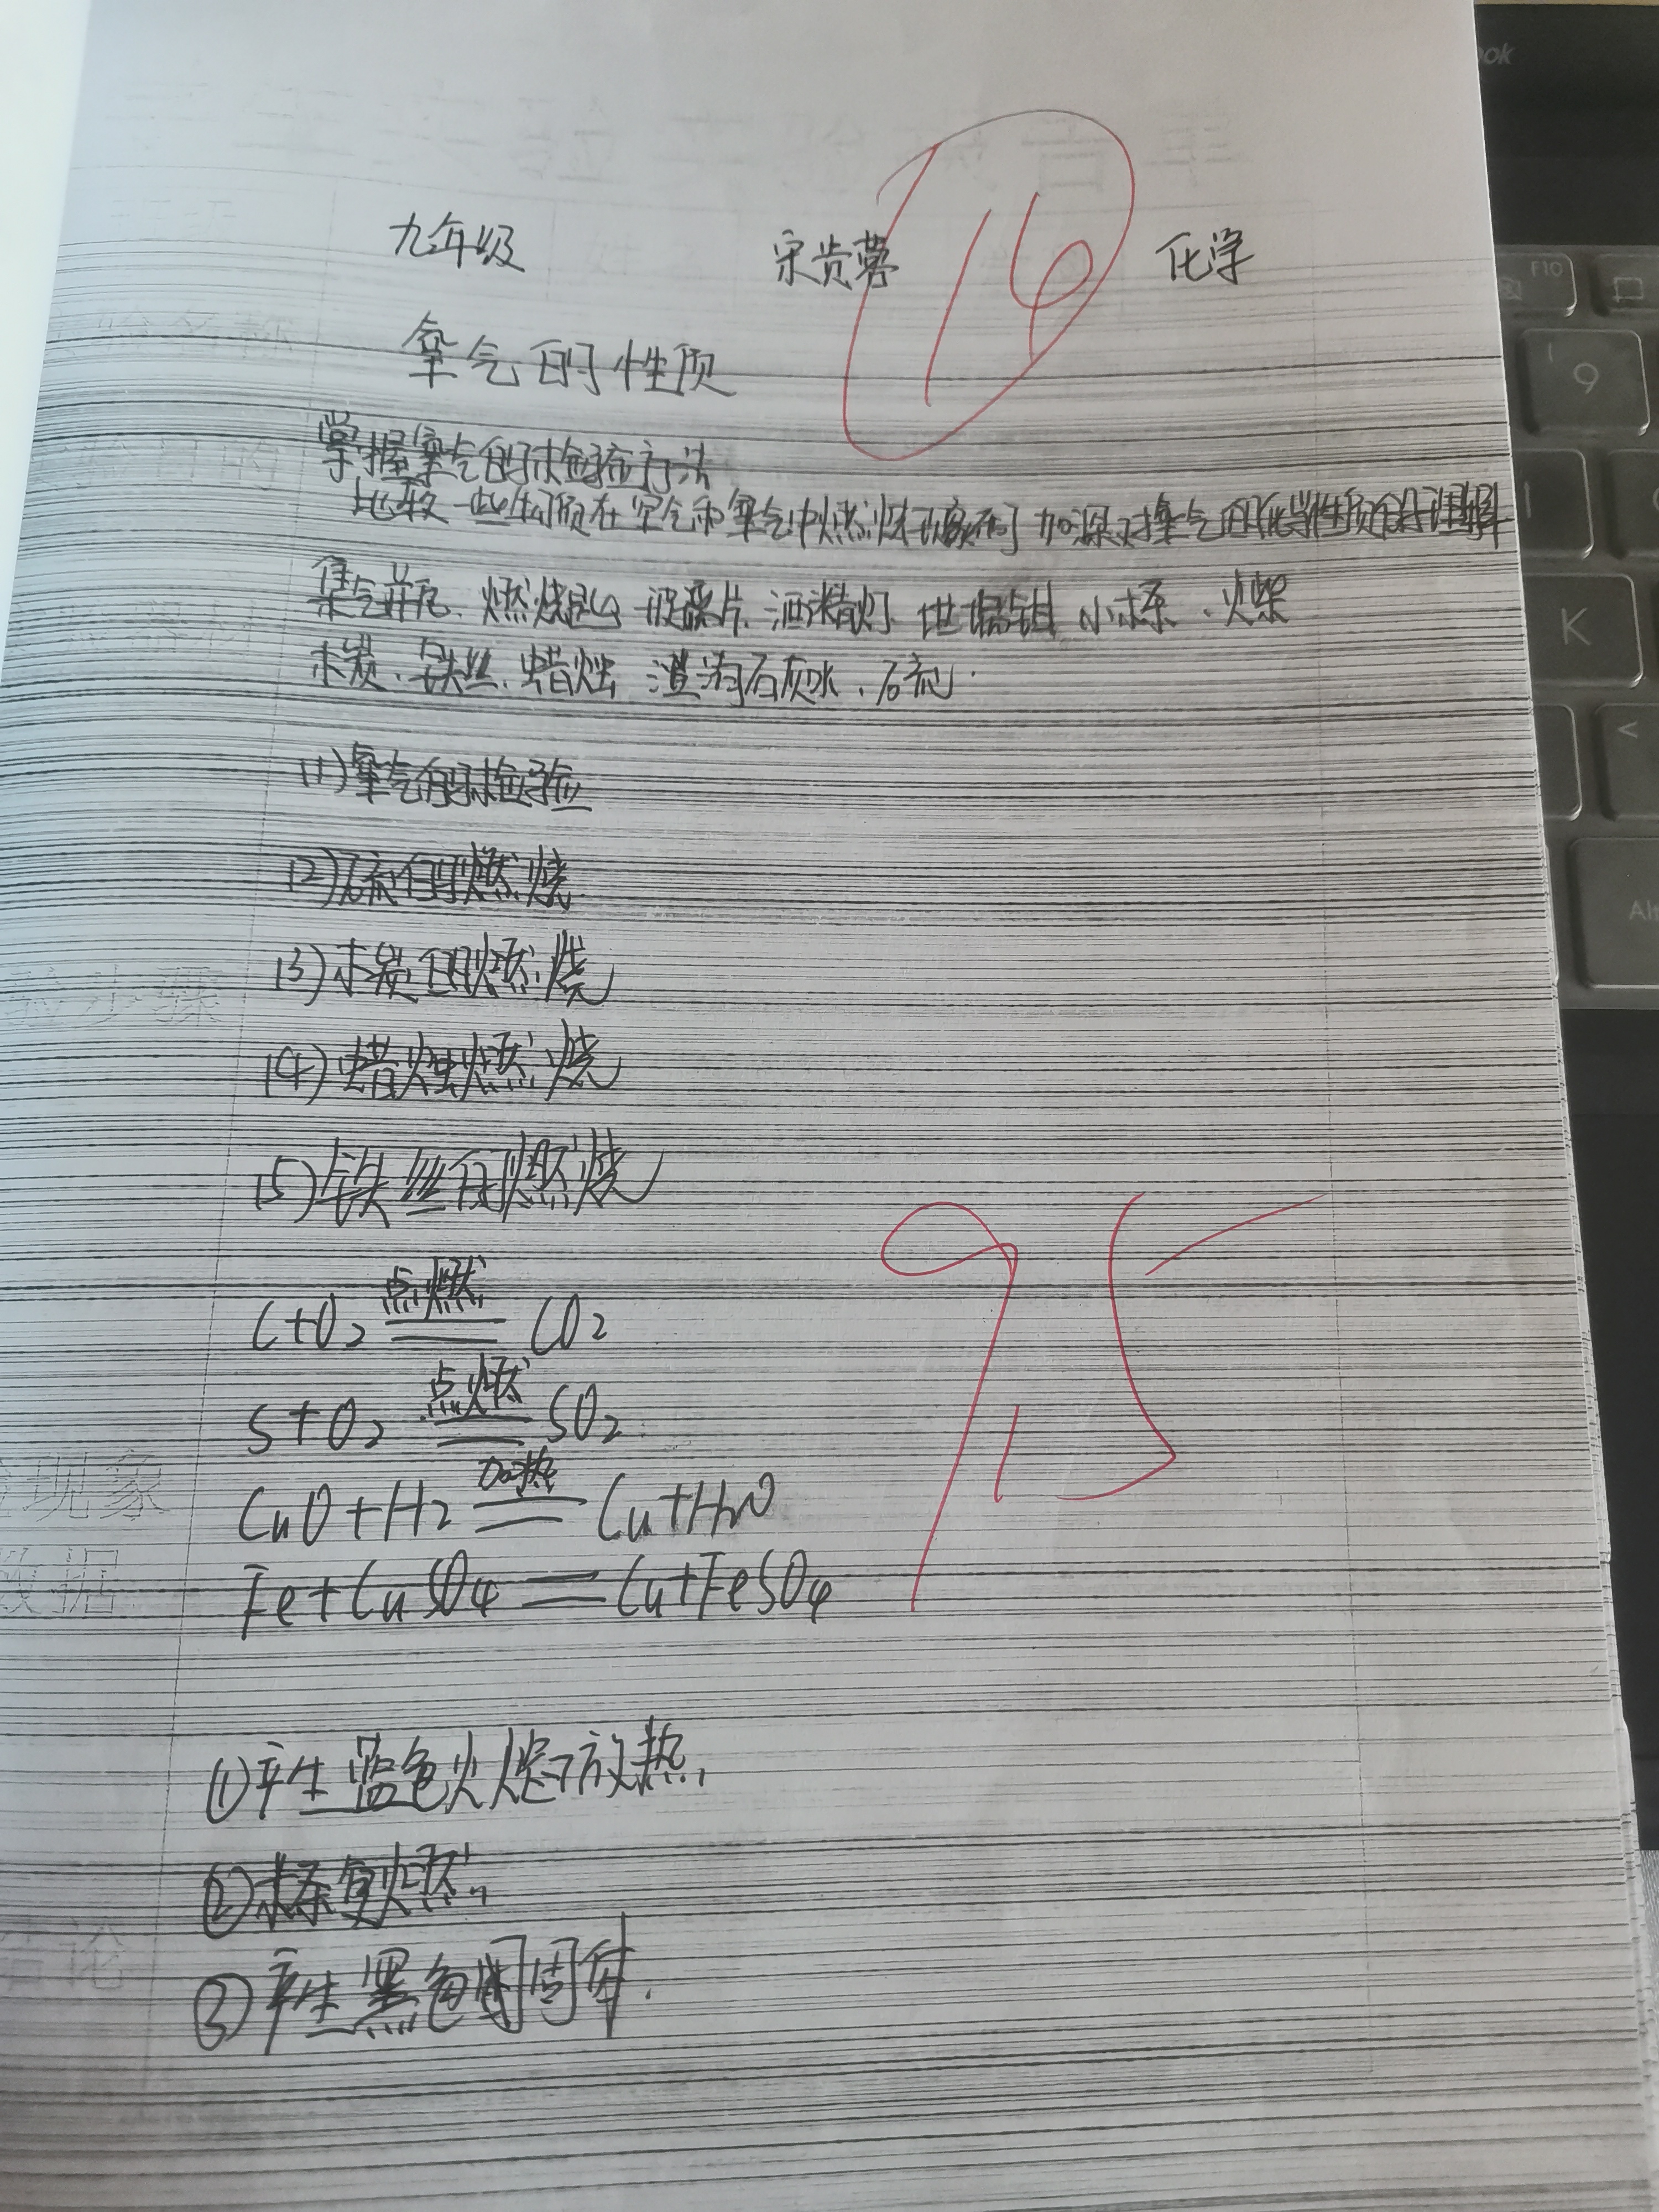 九年级 宋贵蓉 16 化学
氧气的性质
掌握氧气的检验方法
比较一些物质在空气和氧气中燃烧现象不同 加深对氧气的化学性质的理解
集气瓶、燃烧匙、玻璃片、酒精灯 坩埚钳 小木条、火柴
木炭、铁丝、蜡烛 澄清石灰水、石硫.
(1)氧气的检验
(2)硫的燃烧
(3)木炭的燃烧
(4)蜡烛燃烧
(5)铁丝的燃烧
C+O2 点燃 CO2
S+O2 点燃 SO2
CuO+H2 加热 Cu+H2O
Fe+CuSO4 = Cu+FeSO4
95
①产生蓝色火焰放热.
②木条复燃.
③产生黑色固体.
步骤
现象
数据
结论
F10
9
K
<
Alt
ook